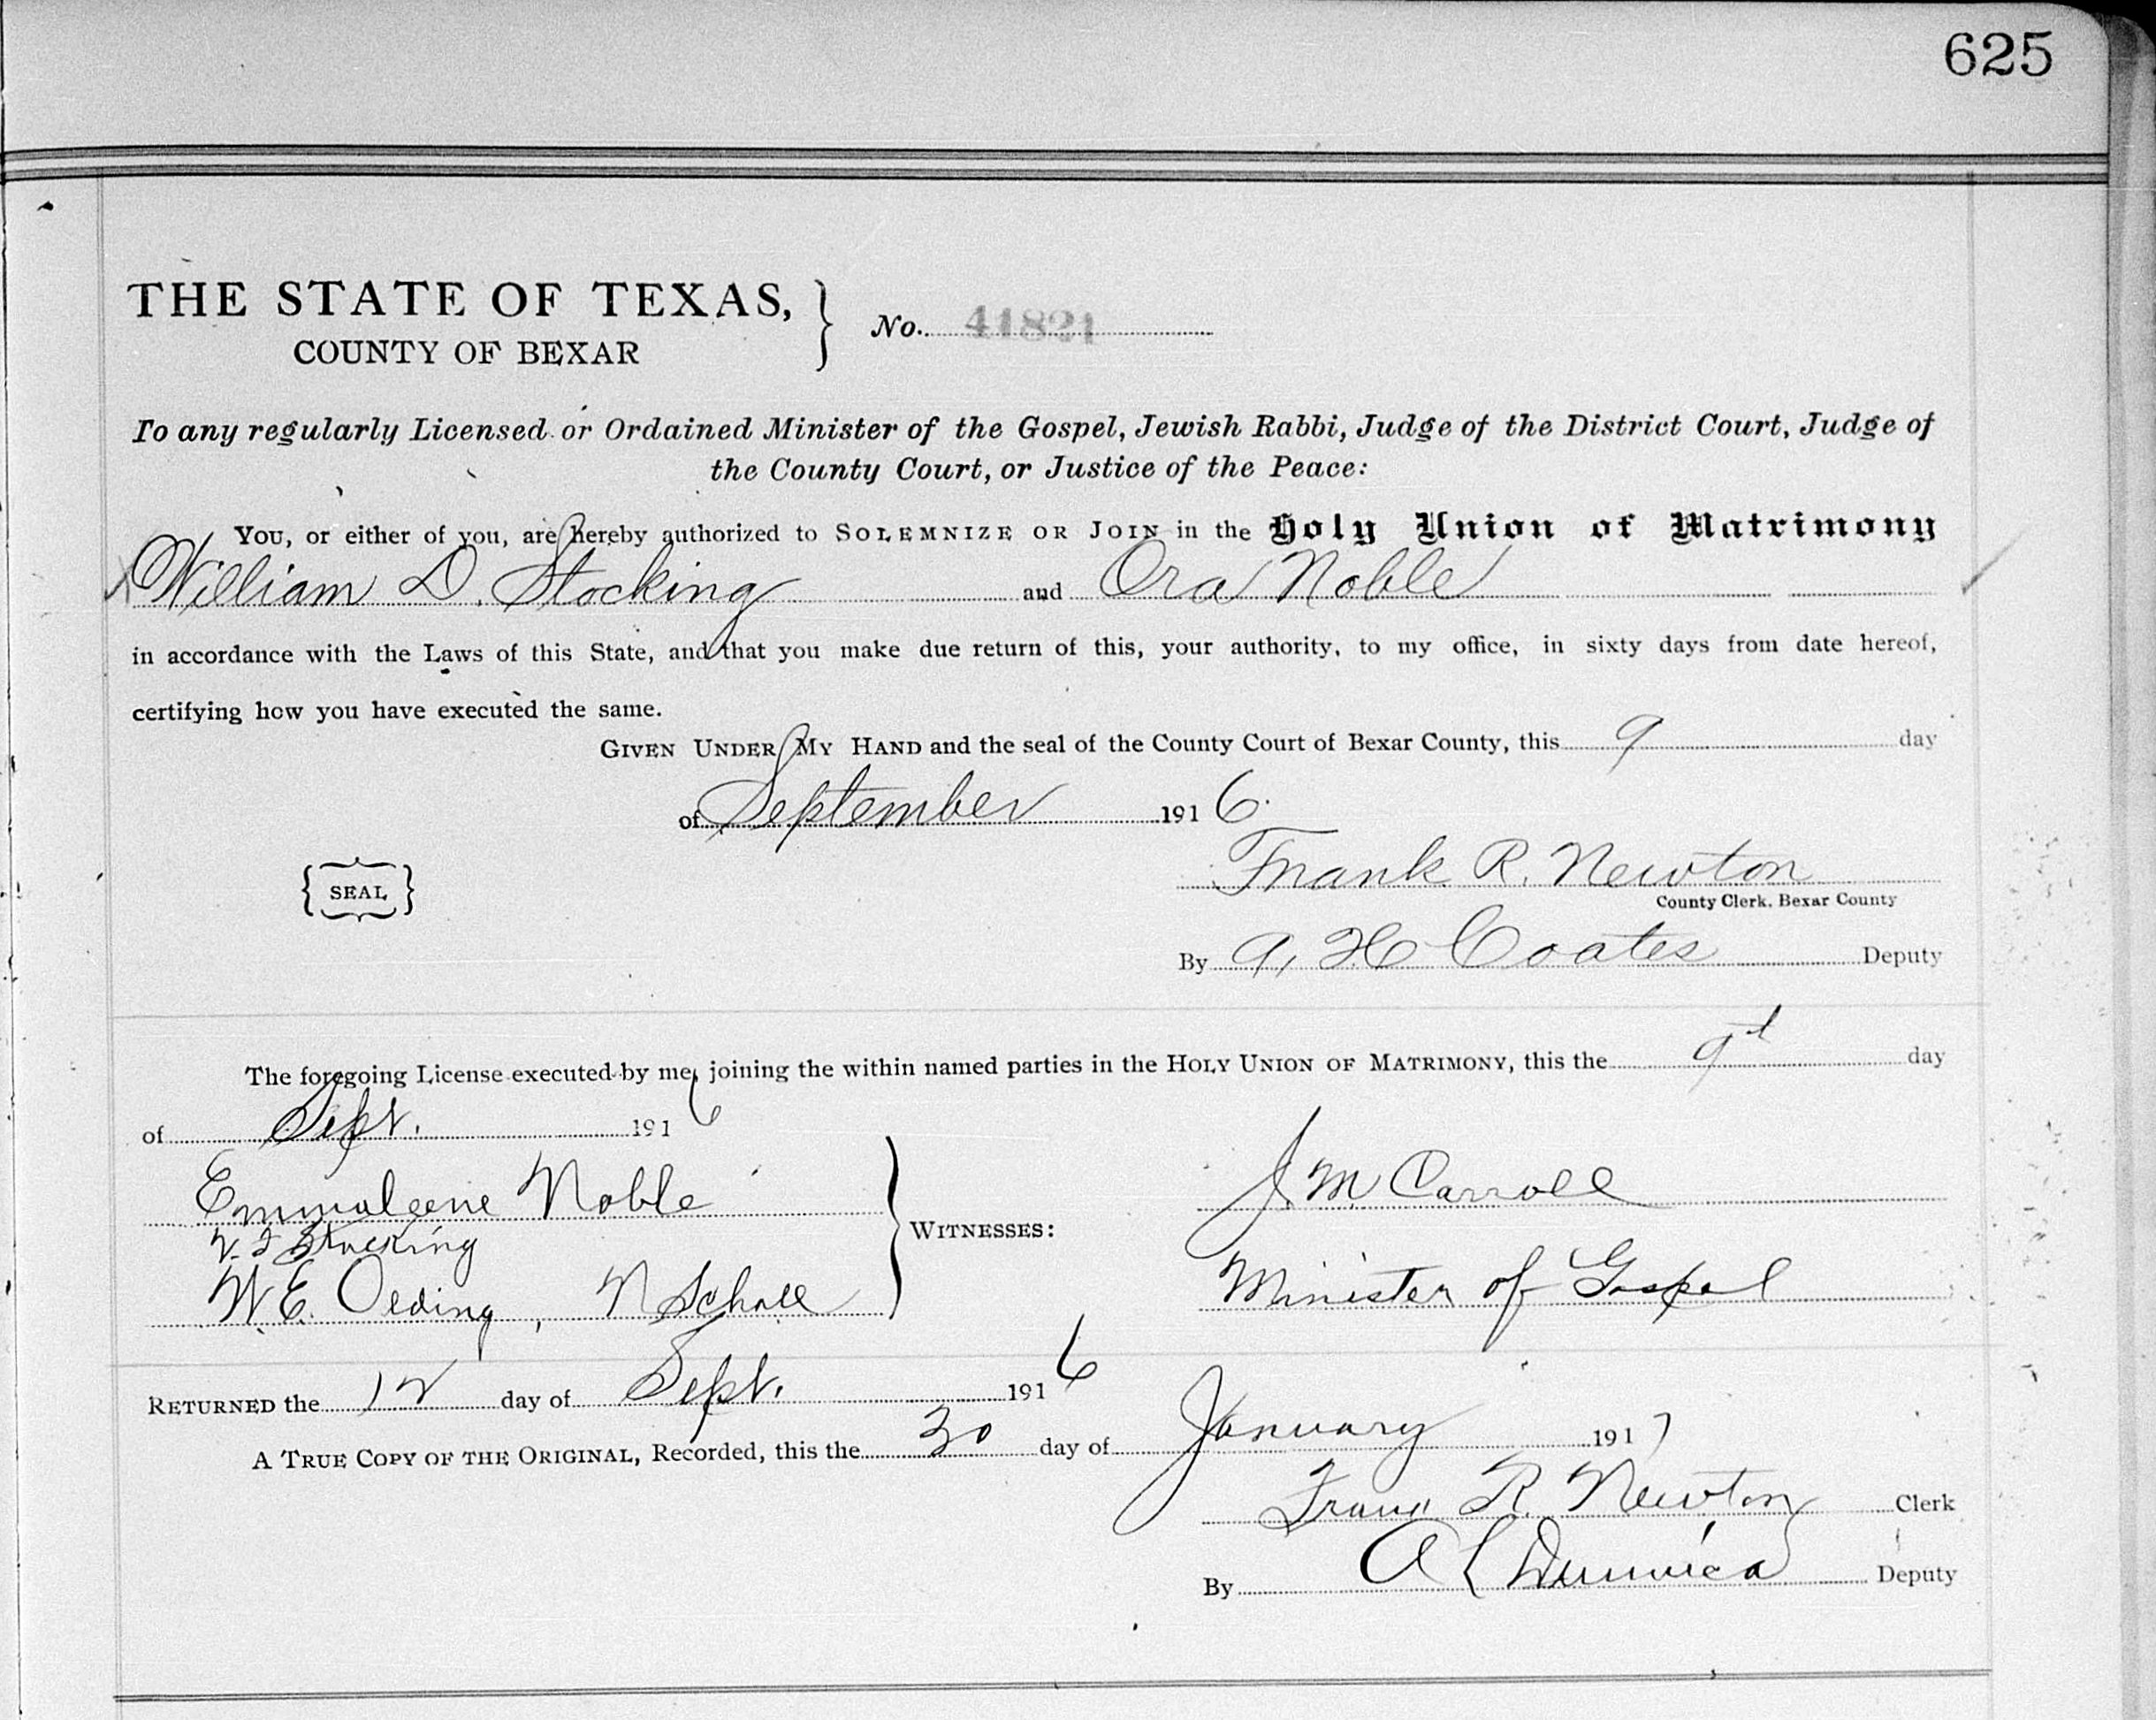 625
THE STATE OF TEXAS,
COUNTY OF BEXAR
No. 41821
To any regularly Licensed or Ordained Minister of the Gospel, Jewish Rabbi, Judge of the District Court, Judge of
the County Court, or Justice of the Peace:
You, or either of you, are hereby authorized to SOLEMNIZE OR JOIN in the Holy Union of Matrimony
William D. Stocking and Ora Noble
in accordance with the Laws of this State, and that you make due return of this, your authority, to my office, in sixty days from date hereof,
certifying how you have executed the same.
GIVEN UNDER MY HAND and the seal of the County Court of Bexar County, this 9 day
of September 1916.
SEAL
Frank R. Newton
County Clerk, Bexar County
By A, H Coates Deputy
The foregoing License executed by me, joining the within named parties in the HOLY UNION OF MATRIMONY, this the 9th day
of Sept. 1916
Emmaleene Noble
V. F Stocking
W. E. Olding, N Scholl
WITNESSES:
J. M Carroll
Minister of Gospel
RETURNED the 12 day of Sept. 1916
A TRUE COPY OF THE ORIGINAL, Recorded, this the 30 day of January 1917
Frank R. Newton Clerk
By A L Deputy